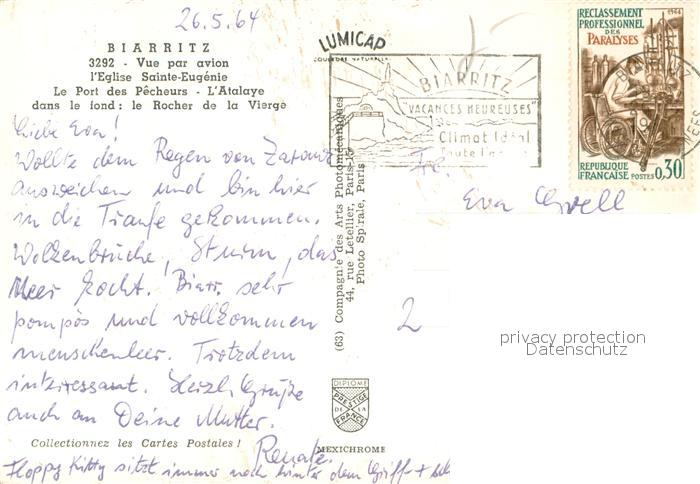 26.5.64
BIARRITZ
3292 - Vue par avion
l'Eglise Sainte-Eugénie
Le Port des Pêcheurs - L'Atalaye
dans le fond : le Rocher de la Vierge
Liebe Eva!
Wollte dem Regen von Zarauz
ausweichen und bin hier
in die Traufe gekommen.
Wolkenbrüche, Sturm, das
Meer kocht. Biarr. sehr
pompös und vollkommen
menschenleer. Trotzdem
interessant. Herzl. Grüße
auch an Deine Mutter.
Renate.
Collectionnez les Cartes Postales !
Floppy Kitty sitzt immer noch hinter dem Griff +
LUMICAP
COULEURS NATURELLES
BIARRITZ
"VACANCES HEUREUSES"
Climat Idéal
toute l'année
RECLASSEMENT
PROFESSIONNEL
DES
PARALYSÉS
1964
RÉPUBLIQUE
FRANÇAISE
POSTES 0,30
Frl.
Eva
2
(63) Compagnie des Arts Photomécaniques
44, rue Letellier, Paris-15
Photo Spirale, Paris
DIPLOME
PRESTIGE
DE LA
FRANCE
MEXICHROME
privacy protection
Datenschutz